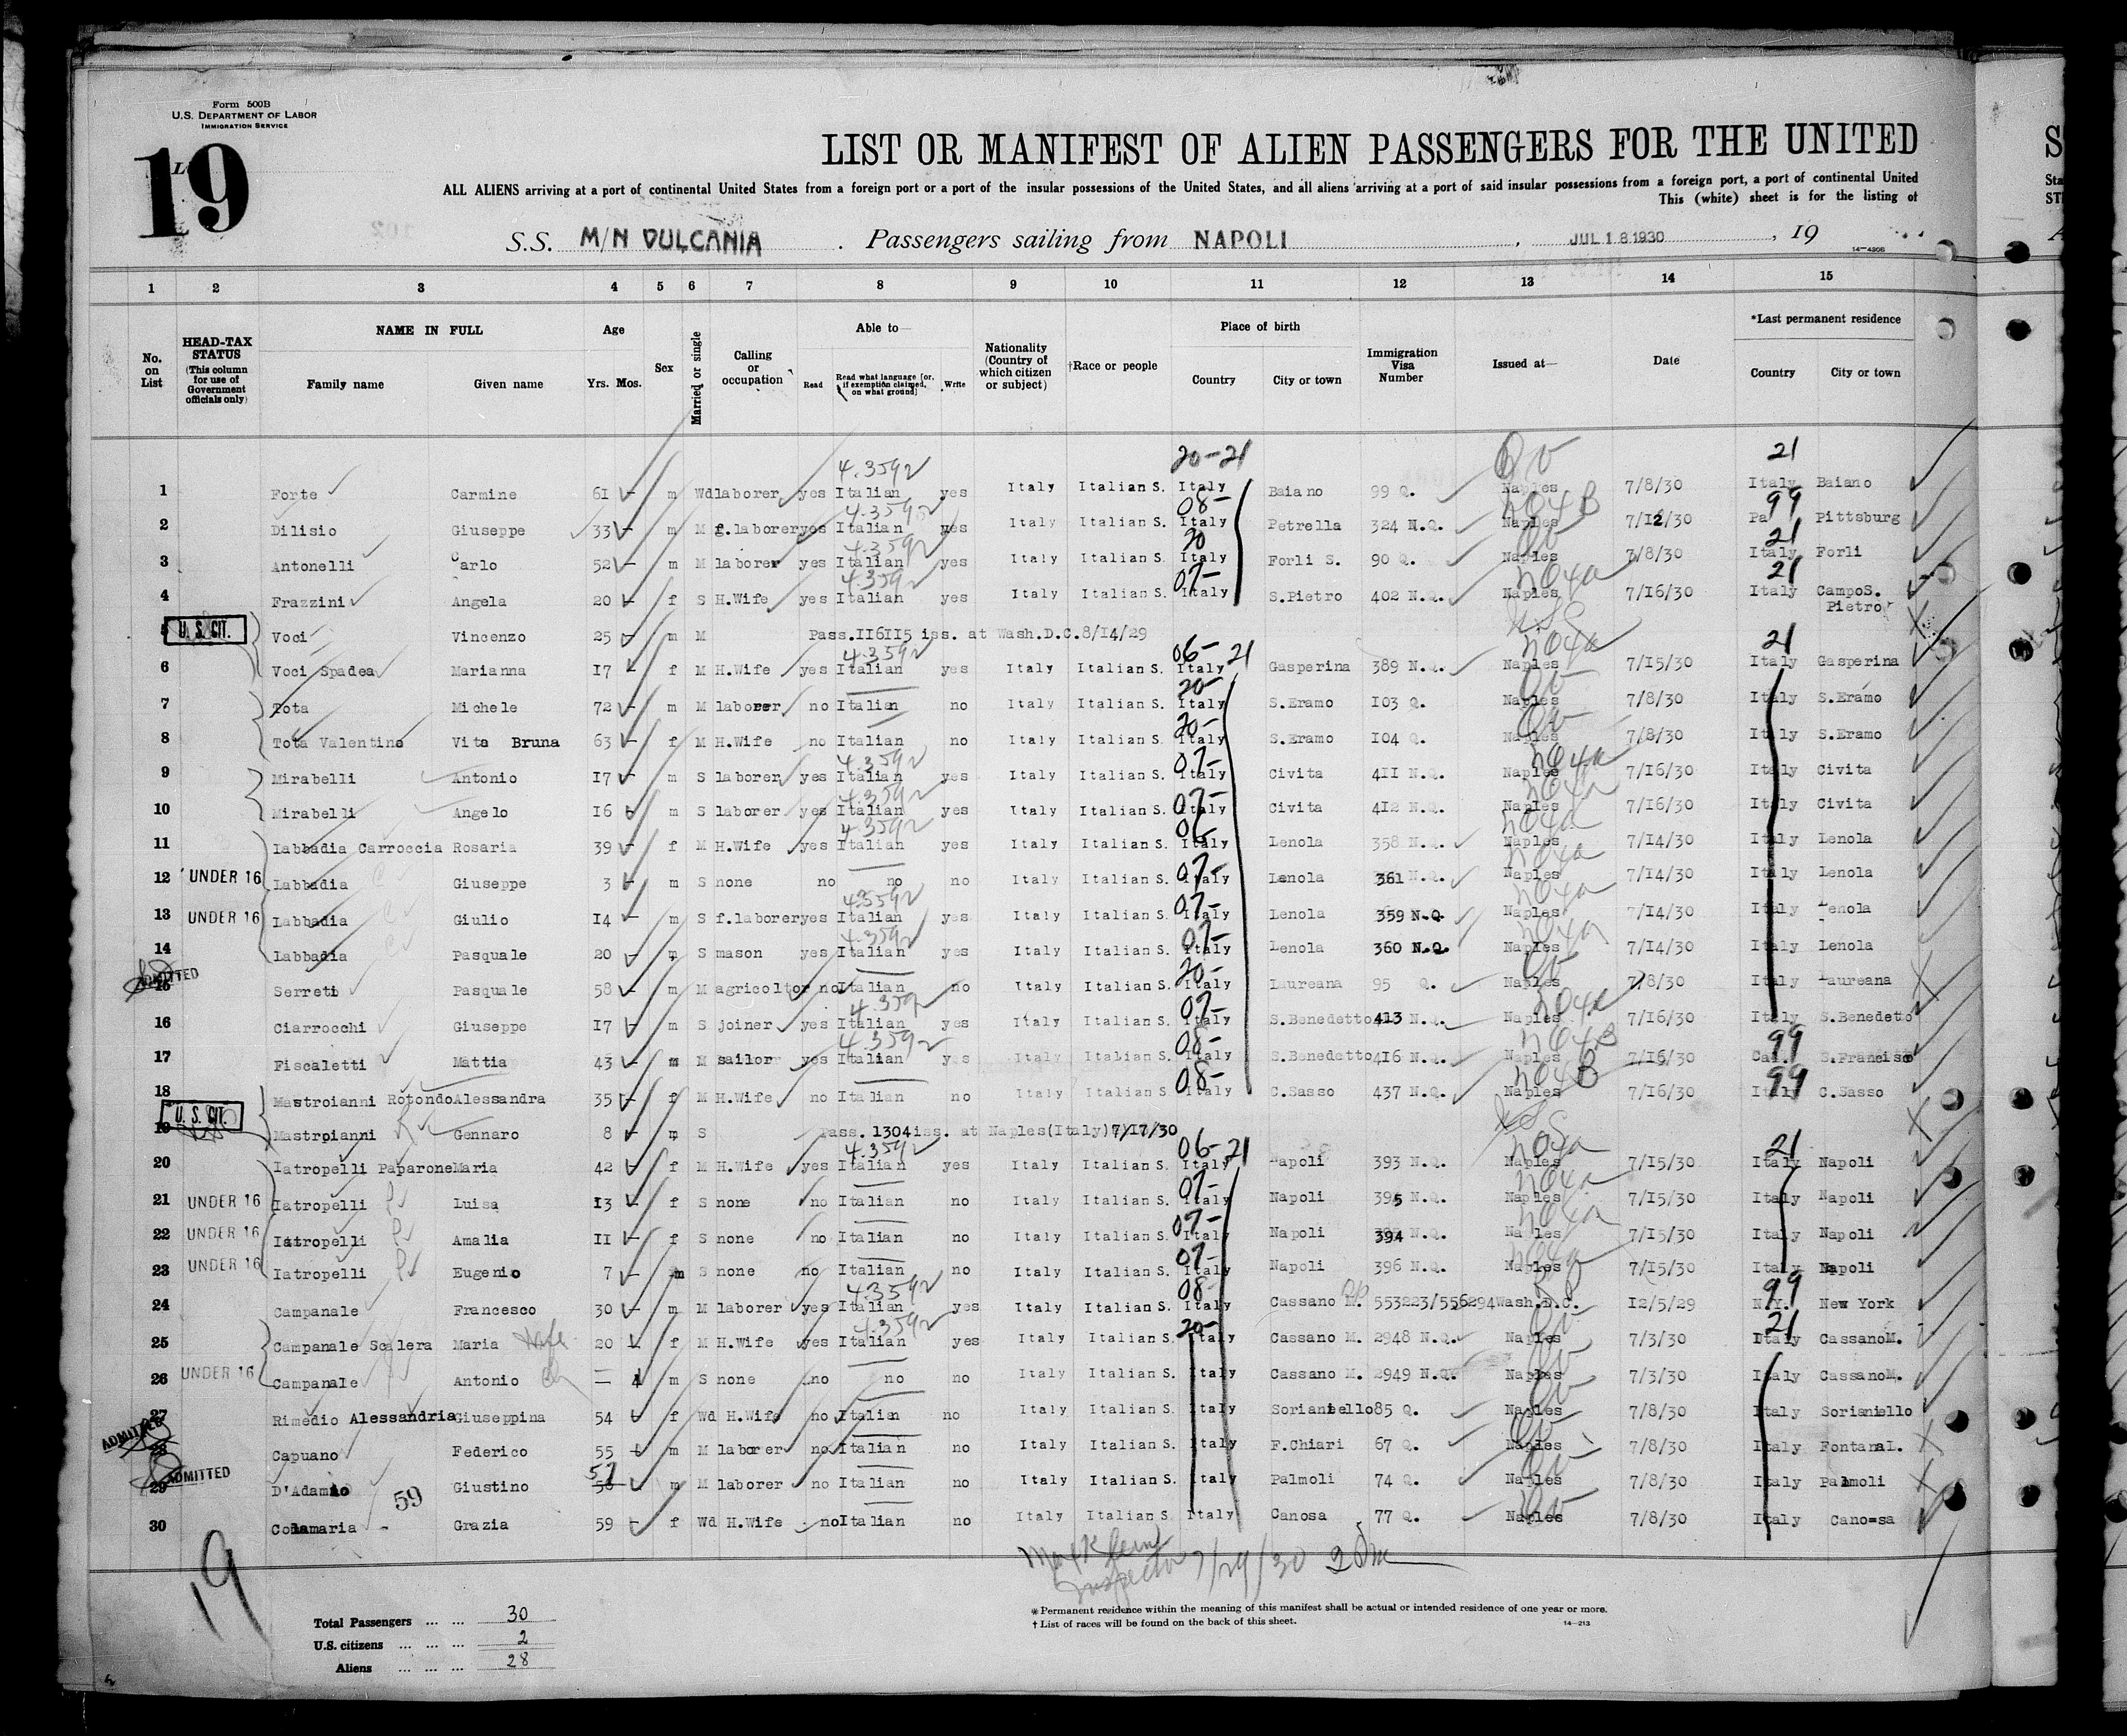 Form 500B
U.S. DEPARTMENT OF LABOR
IMMIGRATION SERVICE
19
LIST OR MANIFEST OF ALIEN PASSENGERS FOR THE UNITED
ALL ALIENS arriving at a port of continental United States from a foreign port or a port of the insular possessions of the United States, and all aliens arriving at a port of said insular possessions from a foreign port, a port of continental United
This (white) sheet is for the listing of
S.S. M/N VULCANIA . Passengers sailing from NAPOLI , JUL 18 1930 , 19
14-4206
1 2 3 4 5 6 7 8 9 10 11 12 13 14 15
No. on List
HEAD-TAX STATUS (This column for use of Government officials only)
NAME IN FULL
Family name Given name
Age
Yrs. Mos.
Sex
Married or single
Calling or occupation
Able to—
Read Read what language [or, if exemption claimed, on what ground] Write
Nationality (Country of which citizen or subject)
†Race or people
Place of birth
Country City or town
Immigration Visa Number
Issued at—
Date
*Last permanent residence
Country City or town
20-21 21
1 Forte Carmine 61 m Wd laborer yes Italian yes Italy Italian S. Italy Baiano 99 Q. Naples 7/8/30 Italy Baiano
2 Dilisio Giuseppe 33 m M f.laborer yes Italian yes Italy Italian S. Italy Petrella 324 N.Q. Naples 7/12/30 Pa Pittsburg
3 Antonelli Carlo 52 m M laborer yes Italian yes Italy Italian S. Italy Forli S. 90 Q. Naples 7/8/30 Italy Forli
4 Frazzini Angela 20 f S H.Wife yes Italian yes Italy Italian S. Italy S.Pietro 402 N.Q. Naples 7/16/30 Italy CampoS. Pietro
5 U. S. CIT. Voci Vincenzo 25 m M Pass.116115 iss. at Wash.D.C.8/14/29
6 Voci Spadea Marianna 17 f M H.Wife yes Italian yes Italy Italian S. Italy Gasperina 389 N.Q. Naples 7/15/30 Italy Gasperina
7 Tota Michele 72 m M laborer no Italian no Italy Italian S. Italy S.Eramo 103 Q. Naples 7/8/30 Italy S.Eramo
8 Tota Valentino Vita Bruna 63 f M H.Wife no Italian no Italy Italian S. Italy S.Eramo 104 Q. Naples 7/8/30 Italy S.Eramo
9 Mirabelli Antonio 17 m S laborer yes Italian yes Italy Italian S. Italy Civita 411 N.Q. Naples 7/16/30 Italy Civita
10 Mirabelli Angelo 16 m S laborer yes Italian yes Italy Italian S. Italy Civita 412 N.Q. Naples 7/16/30 Italy Civita
11 Labbadia Carroccia Rosaria 39 f M H.Wife yes Italian yes Italy Italian S. Italy Lenola 358 N.Q. Naples 7/14/30 Italy Lenola
12 UNDER 16 Labbadia Giuseppe 3 m S none no no no Italy Italian S. Italy Lenola 361 N.Q. Naples 7/14/30 Italy Lenola
13 UNDER 16 Labbadia Giulio 14 m S f.laborer yes Italian yes Italy Italian S. Italy Lenola 359 N.Q. Naples 7/14/30 Italy Lenola
14 Labbadia Pasquale 20 m S mason yes Italian yes Italy Italian S. Italy Lenola 360 N.Q. Naples 7/14/30 Italy Lenola
ADMITTED
15 Serreti Pasquale 58 m M agricoltor no Italian no Italy Italian S. Italy Laureana 95 Q. Naples 7/8/30 Italy Laureana
16 Ciarrocchi Giuseppe 17 m S joiner yes Italian yes Italy Italian S. Italy S.Benedetto 413 N.Q. Naples 7/16/30 Italy S.Benedetto
17 Fiscaletti Mattia 43 m M sailor yes Italian yes Italy Italian S. Italy S.Benedetto 416 N.Q. Naples 7/16/30 Cal. S.Francisco
18 Mastroianni Rotondo Alessandra 35 f M H.Wife no Italian no Italy Italian S. Italy C.Sasso 437 N.Q. Naples 7/16/30 Italy C.Sasso
19 U. S. CIT. Mastroianni Gennaro 8 m S Pass. 1304 iss. at Naples(Italy) 7/17/30
20 Iatropelli Paparone Maria 42 f M H.Wife yes Italian yes Italy Italian S. Italy Napoli 393 N.Q. Naples 7/15/30 Italy Napoli
21 UNDER 16 Iatropelli Luisa 13 f S none no Italian no Italy Italian S. Italy Napoli 395 N.Q. Naples 7/15/30 Italy Napoli
22 UNDER 16 Iatropelli Amalia 11 f S none no Italian no Italy Italian S. Italy Napoli 394 N.Q. Naples 7/15/30 Italy Napoli
23 UNDER 16 Iatropelli Eugenio 7 m S none no Italian no Italy Italian S. Italy Napoli 396 N.Q. Naples 7/15/30 Italy Napoli
24 Campanale Francesco 30 m M laborer yes Italian yes Italy Italian S. Italy Cassano M. 553223/556294 Wash.D.C. 12/5/29 N.Y. New York
25 Campanale Scalera Maria Wife 20 f M H.Wife yes Italian yes Italy Italian S. Italy Cassano M. 2948 N.Q. Naples 7/3/30 Italy CassanoM.
26 UNDER 16 Campanale Antonio — 4 m S none no no no Italy Italian S. Italy Cassano M. 2949 N.Q. Naples 7/3/30 Italy CassanoM.
27 Rimedio Alessandria Giuseppina 54 f Wd H.Wife no Italian no Italy Italian S. Italy Sorianello 85 Q. Naples 7/8/30 Italy Sorianiello
ADMITTED
28 Capuano Federico 55 m M laborer no Italian no Italy Italian S. Italy F.Chiari 67 Q. Naples 7/8/30 Italy FontanaL.
ADMITTED
29 D'Adamio 59 Giustino 57 m M laborer no Italian no Italy Italian S. Italy Palmoli 74 Q. Naples 7/8/30 Italy Palmoli
30 Colamaria Grazia 59 f Wd H.Wife no Italian no Italy Italian S. Italy Canosa 77 Q. Naples 7/8/30 Italy Cano=sa
Inspector 7/29/30
19
Total Passengers ... ... 30
U.S. citizens ... ... ... 2
Aliens ... ... ... 28
* Permanent residence within the meaning of this manifest shall be actual or intended residence of one year or more.
† List of races will be found on the back of this sheet.
14-213